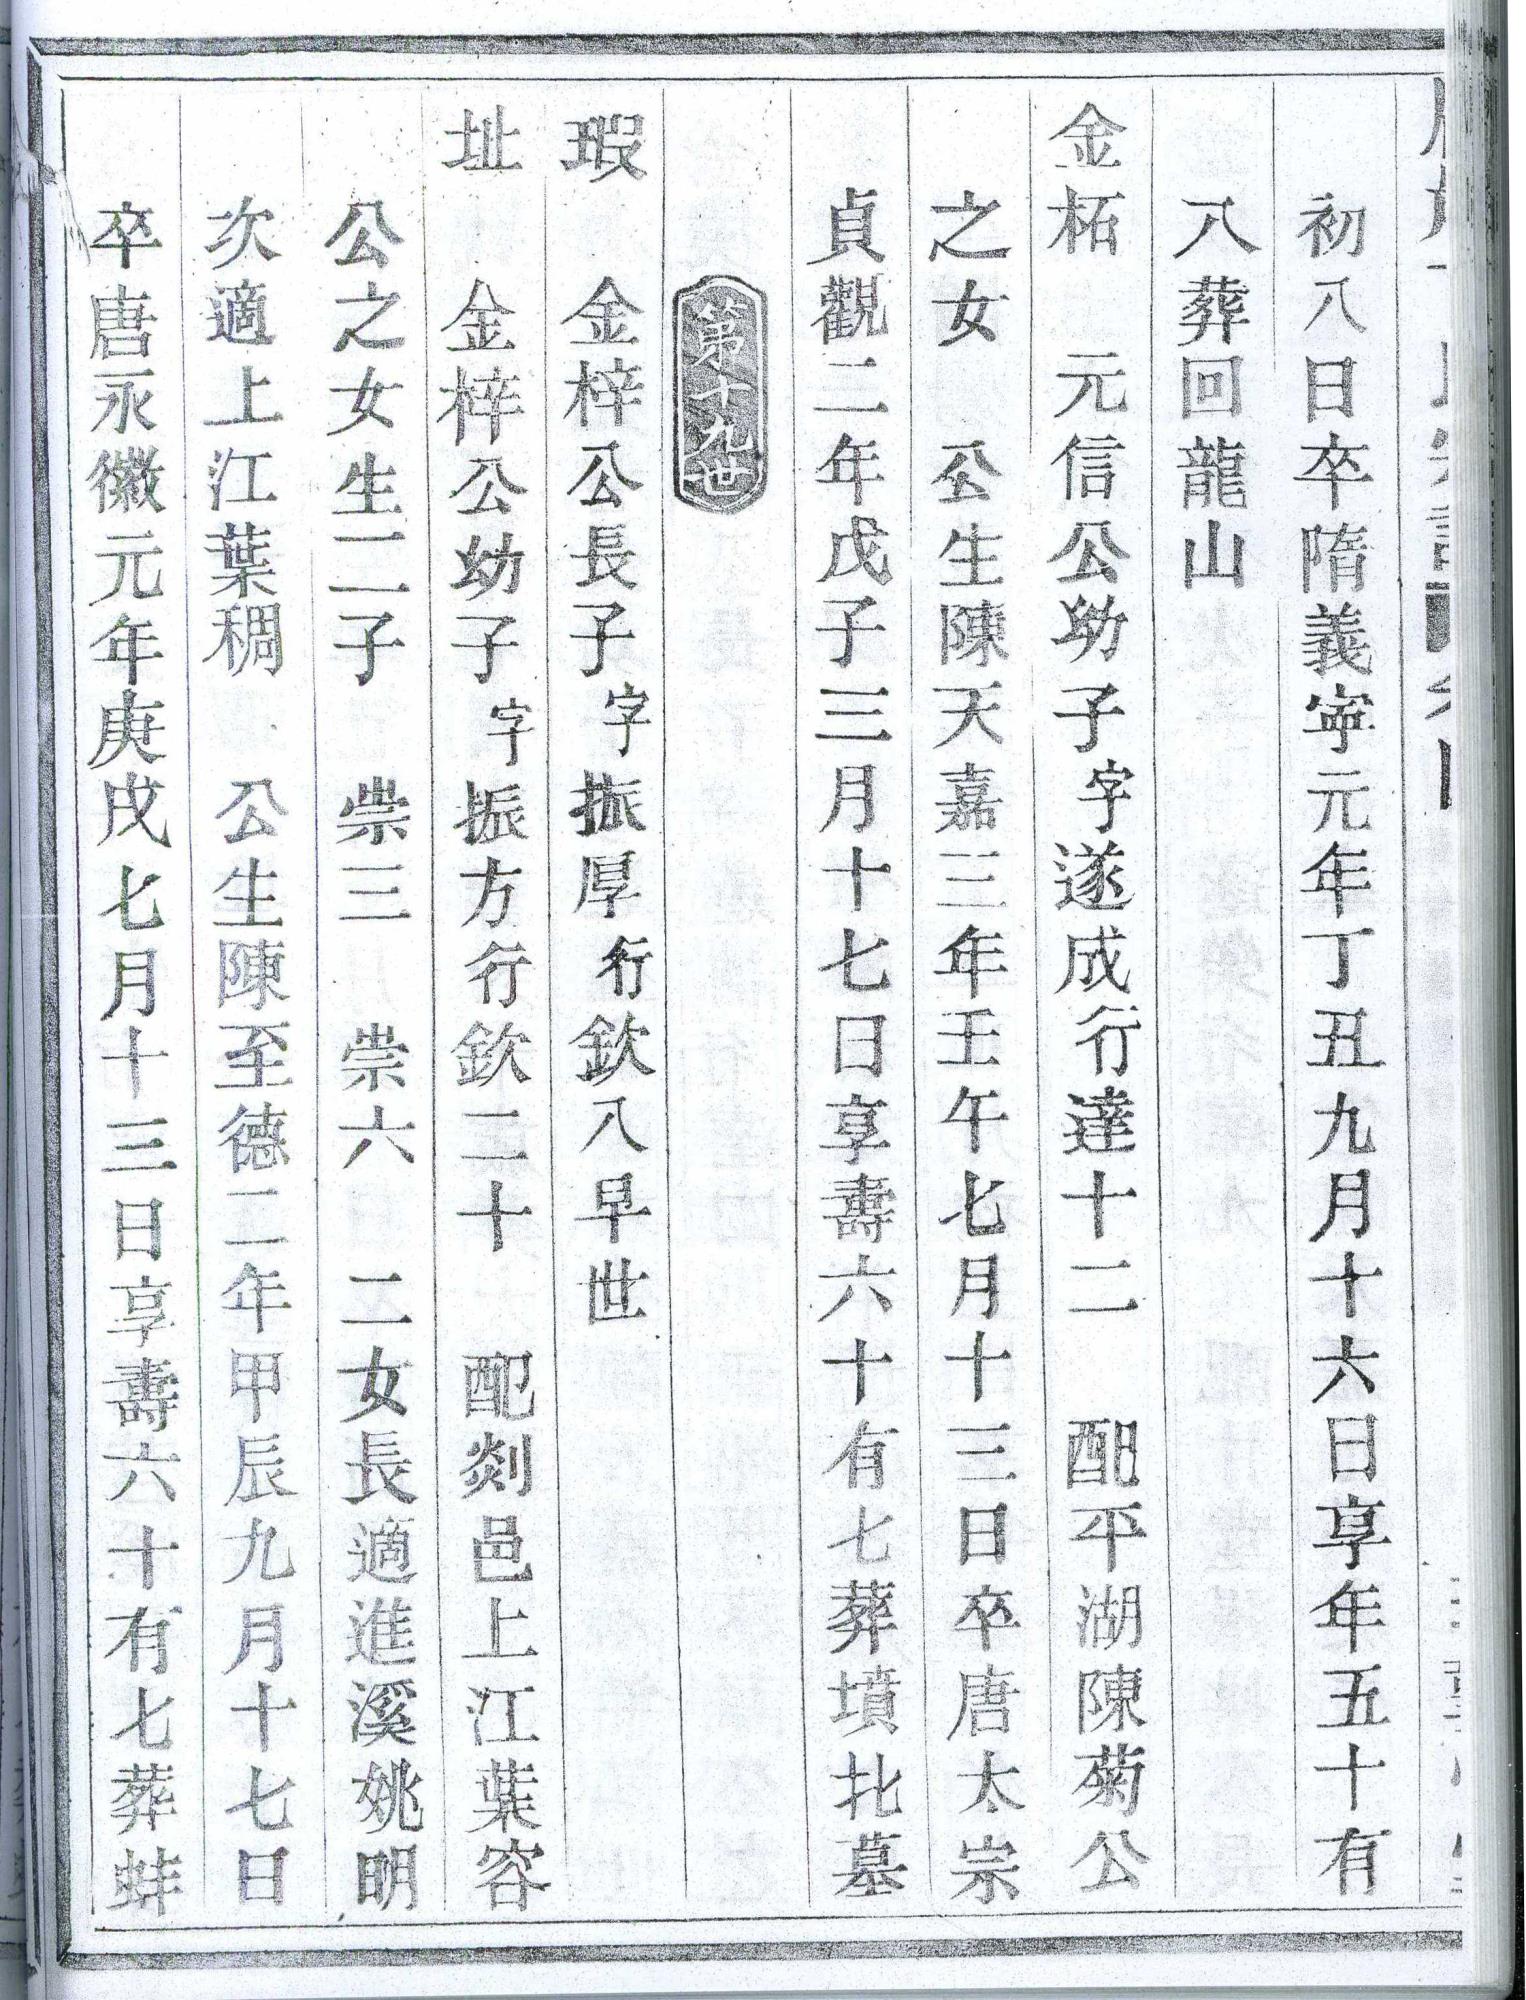 初八日卒隋義寧元年丁丑九月十六日享年五十有
八葬回龍山
金柘 元信公幼子字遂成行達十二 配平湖陳菊公
之女 公生陳天嘉三年壬午七月十三日卒唐太宗
貞觀二年戊子三月十七日享壽六十有七葬墳北墓
第十九世
瑕 金梓公長子字振厚行欽八早世
址 金梓公幼子字振方行欽二十 配剡邑上江葉容
公之女生二子 崇三 崇六 二女長適進溪姚明
次適上江葉稠 公生陳至德二年甲辰九月十七日
卒唐永徽元年庚戌七月十三日享壽六十有七葬蚌